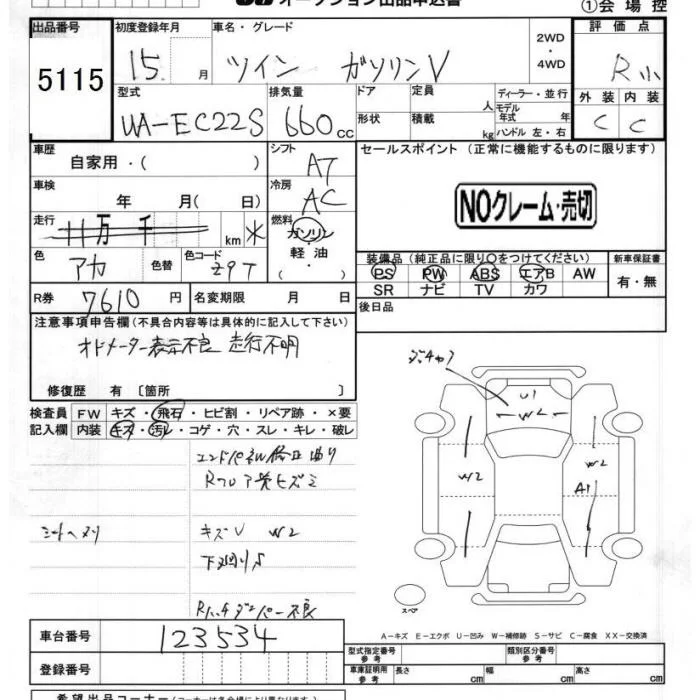 オークション出品申込書
①会場控
出品番号
5115
初度登録年月
15 月
車名・グレード
ツイン ガソリンV
2WD
・
4WD
評価点
R小
型式
UA-EC22S
排気量
660 cc
ドア
形状
定員
人
積載
kg
ディーラー・並行
モデル年式
年
ハンドル 左・右
外装
C
内装
C
車歴
自家用・( )
シフト
AT
車検
年 月( 日)
冷房
AC
走行
11万千 km ※
燃料
ガソリン
軽・油
( ・ )
色
アカ
色替
色コード
Z9T
R券
7610 円
名変期限
月 日
セールスポイント (正常に機能するものに限ります)
NOクレーム・売切
装備品(純正品に限り○をつけてください)
PS PW ABS エアB AW
SR ナビ TV カワ
新車保証書
有・無
後日品
注意事項申告欄(不具合内容等は具体的に記入して下さい)
オドメーター表示不良 走行不明
修復歴 有 〔箇所 〕
検査員
記入欄
FW キズ・飛石・ヒビ割・リペア跡・×要
内装 キズ・汚レ・コゲ・穴・スレ・キレ・破レ
エンドパネル修正曲り
Rフロア先ヒズミ
シートヘタリ
キズV W2
下廻りS
Rハッチダンパー不良
U1
W2
W2
W2
A1
スペア
A-キズ E-エクボ U-凹み W-補修跡 S-サビ C-腐食 XX-交換済
車台番号
123534
登録番号
型式指定番号
参考
類別区分番号
参考
車庫証明用
参考
長さ cm
幅 cm
高さ cm
希望出品コーナー